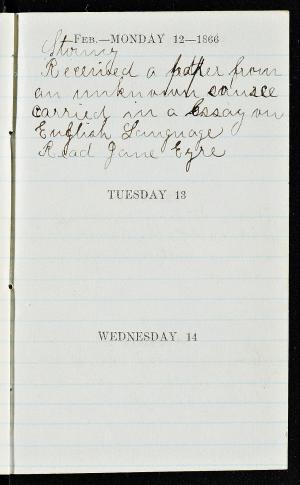 FEB.—MONDAY 12—1866
Stormy
Received a from
an unknown source
carried in a Essay on
English Language
Read Jane Eyre
TUESDAY 13
WEDNESDAY 14